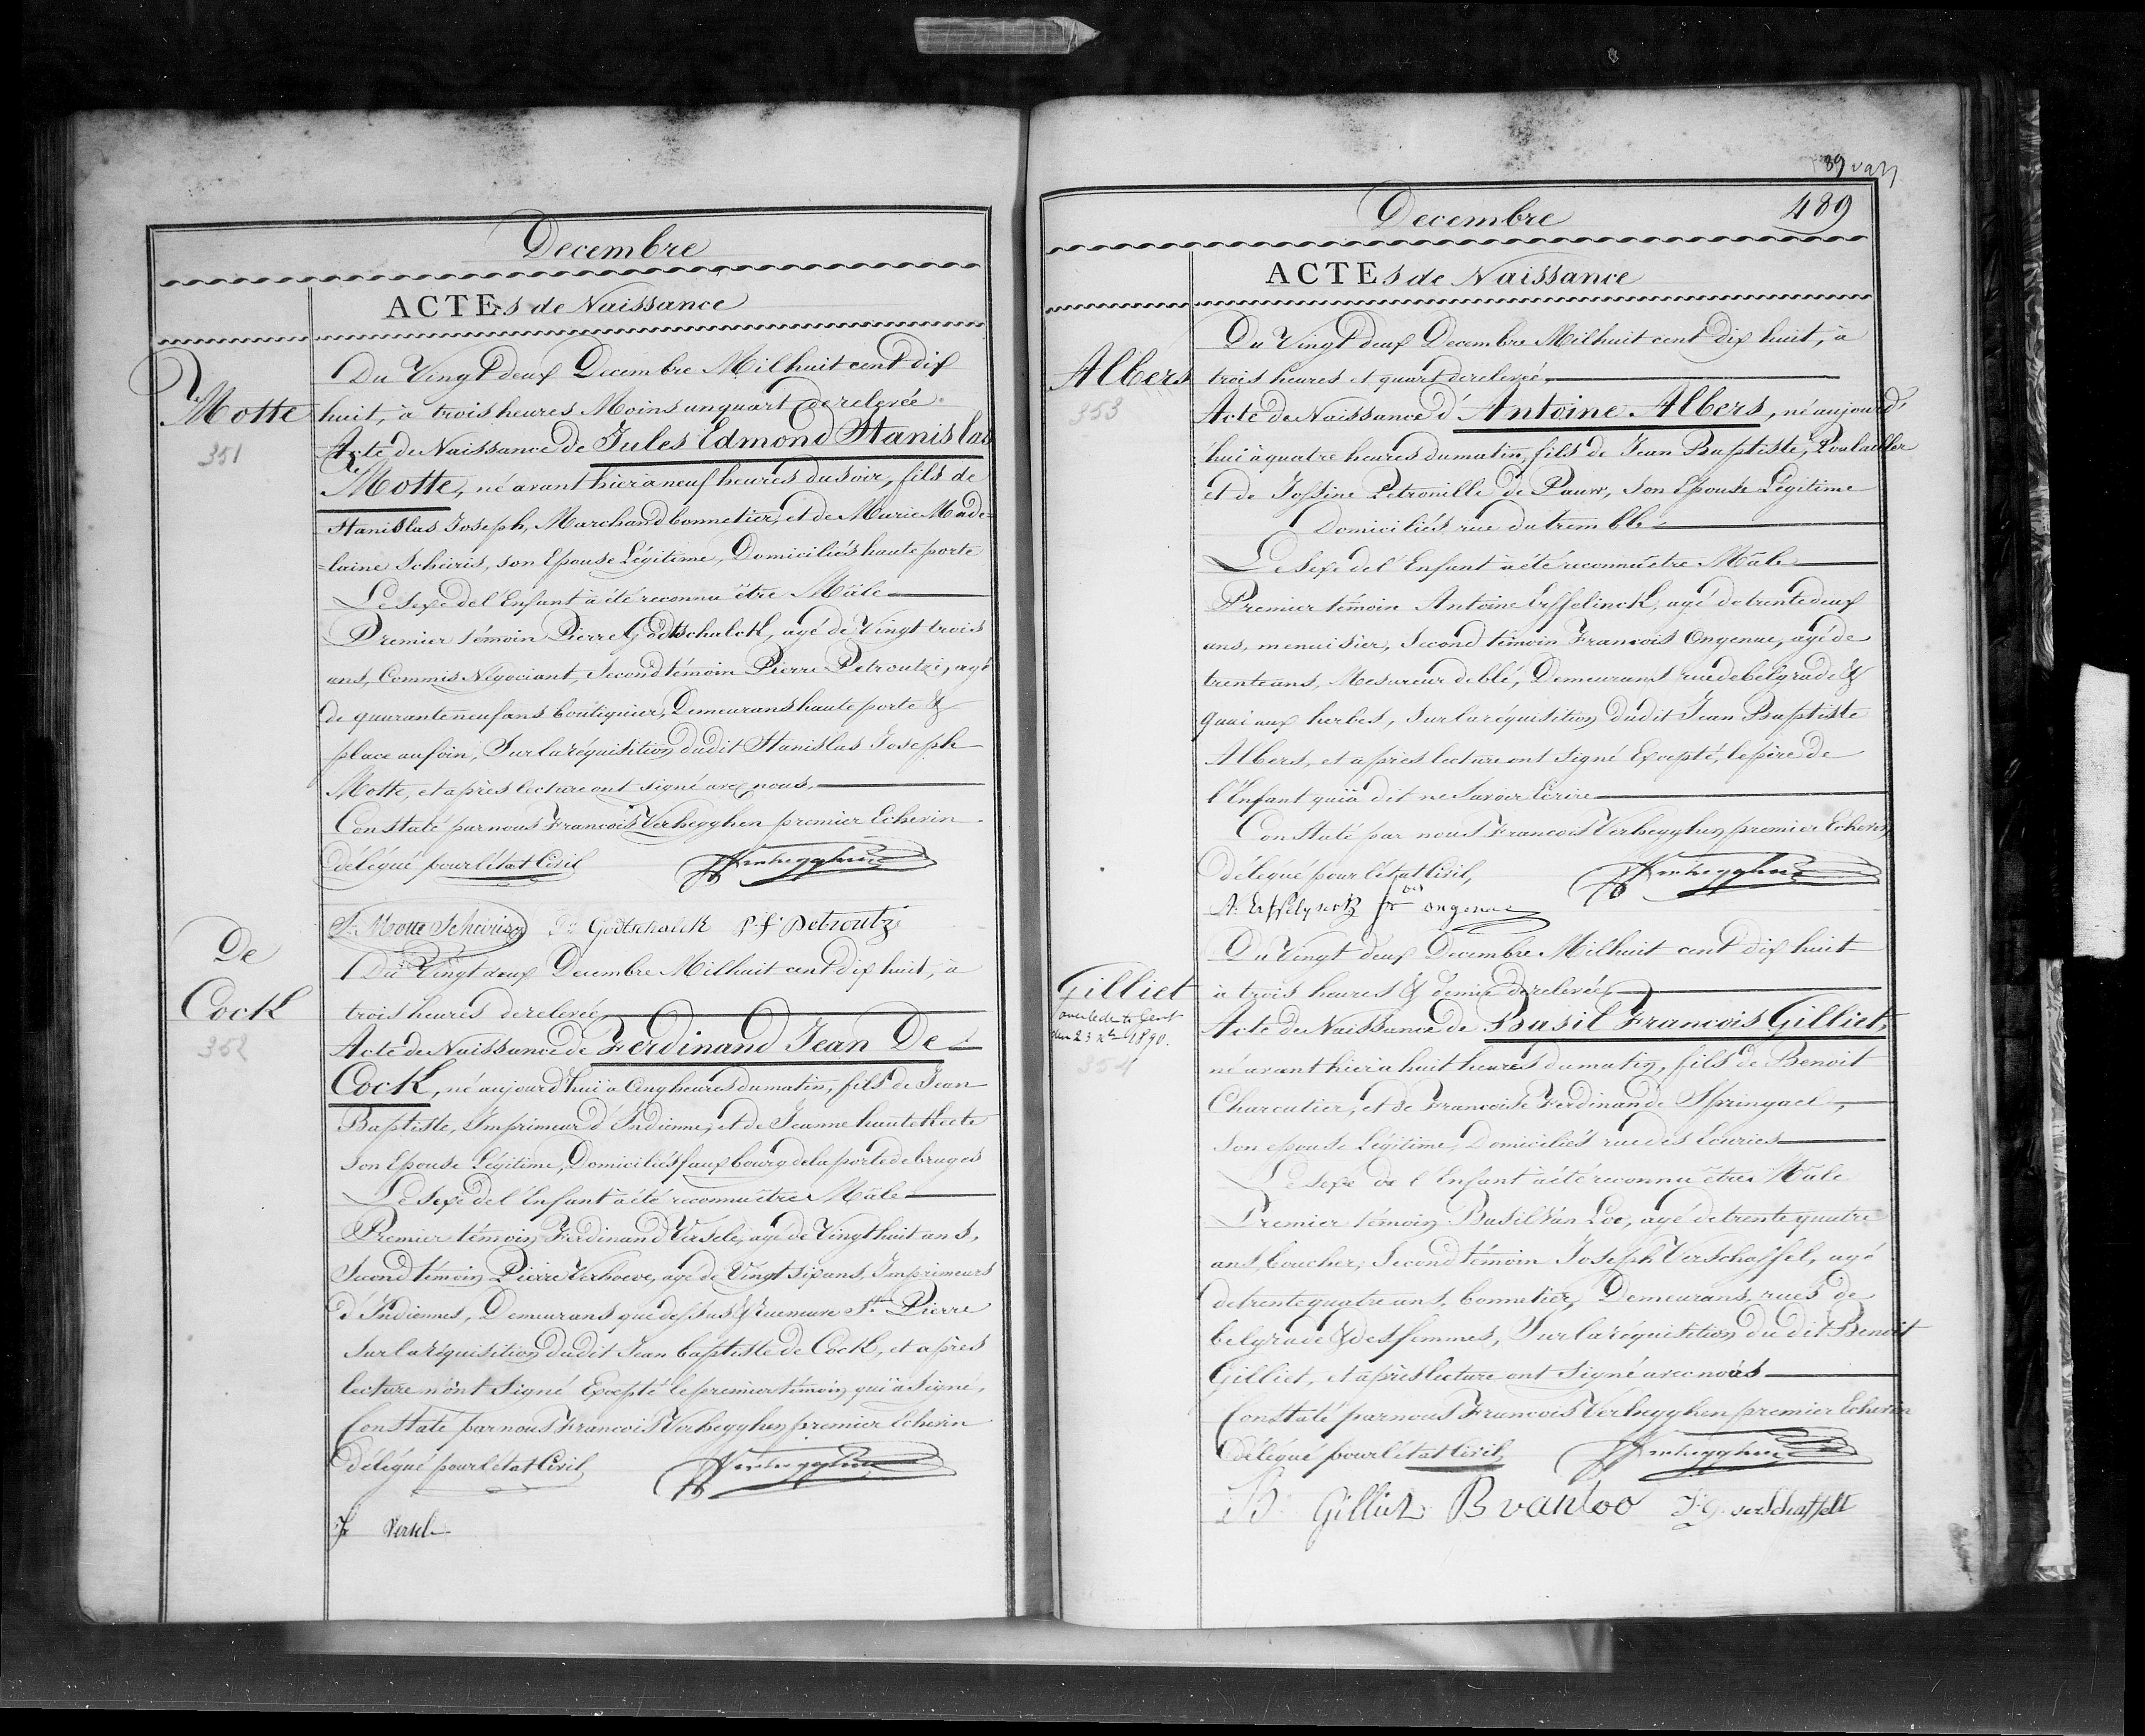 Decembre
ACTEs de Naissance
Motte
351
Du Vingt deux Decembre Mil huit cent dix
huit, à trois heures Moins un quart de relevée
Acte de Naissance de Jules Edmond Stanislas
Motte, né avant hier a neuf heures du soir, fils de
Stanislas Joseph, Marchand bonnetier, et de Marie Made=
=laine Scheiris, son Epouse Légitime, Domiciliés haute porte
Le Sexe del Enfant à été reconnu être Mâle
Premier témoin Pierre Godtschalck, agé de Vingt trois
ans, Commis Négociant, Second témoin Pierre Petroutzi, agé
de quarante neuf ans boutiquier, Demeurans haute porte &
place au foin, Sur la réquisition dudit Stanislas Joseph
Motte, et après lecture ont signé avec nous,
Constaté par nous Francois Verhegghen premier Echevin
délégué pour l'état Civil
Verhegghen
S. Motte Scheiris Pre Godtschalck P. f. Petroutzi
De
Cock
352
Du Vingt deux Decembre Mil huit cent dix huit, à
trois heures de relevée,
Acte de Naissance de Ferdinand Jean De
Cock, né aujourd'hui a Cinq heures du matin, fils de Jean
Baptiste, Imprimeur d'Indienne, et de Jeanne
Son Epouse Légitime, Domiciliés faux bourg de la porte de bruges
Le Sexe del Enfant à été reconnu être Mâle
Premier témoin Ferdinand Versele, agé de Vingt huit ans,
Second témoin Pierre Verhoeve, agé de Vingt six ans, Imprimeurs
d'Indiennes, Demeurans que dessus & St. Pierre
Sur la réquisition dudit Jean baptiste de Cock, et après
lecture n'ont Signé Excepté le premier témoin qui à Signé,
Constaté par nous Francois Verhegghen premier Echevin
Délégué pour l'état Civil
Verhegghen
F Versele
489
Decembre
ACTEs de Naissance
Albers
353
Du Vingt deux Decembre Mil huit cent dix huit, à
trois heures et quart de relevée,
Acte de Naissance d'Antoine Albers, né aujourd'
hui à quatre heures du matin, fils de Jean Baptiste, Poulailler
et de Jossine Petronille de Pauw, Son Epouse Légitime
Domiciliés rue du tremble
Le Sexe del Enfant à été reconnu être Mâle
Premier témoin Antoine Erffelinck, agé de trente deux
ans, menuisier, Second témoin Francois Ongenae, agé de
trente ans, Mesureur de blé, Demeurans rue de belgrade &
quai aux herbes, Sur la réquisition dudit Jean Baptiste
Albers, et après lecture ont signé Excepté, le père de
l'Enfant qui à dit ne Savoir Ecrire
Constaté par nous Francois Verhegghen premier Echevin
délégué pour l'état Civil,
Verhegghen
A: Erffelynck fr ongenae
Gilliet
overleden te Gent
den 23 1890.
354
Du Vingt deux Decembre Mil huit cent dix huit
à trois heures & demie de relevée,
Acte de Naissance de Basil Francois Gilliet,
né avant hier a huit heures du matin, fils de Benoit
Charcutier, et de Francoise Ferdinande Springael,
Son epouse Légitime, Domiciliés rue des Ecuries
Le Sexe de l'Enfant à été reconnu être Mâle
Premier témoin Basil Van Loo, agé de trente quatre
ans, boucher, Second témoin Joseph Verschaffel, agé
de trente quatre ans, bonnetier, Demeurans rues de
belgrade & des femmes, Sur la réquisition du dit Benoit
Gilliet, et après lecture ont signé avec nous
Constaté par nous Francois Verhegghen premier Echevin
Délégué pour l'état Civil,
Verhegghen
B. Gilliet B van loo J. G. verschaffelt